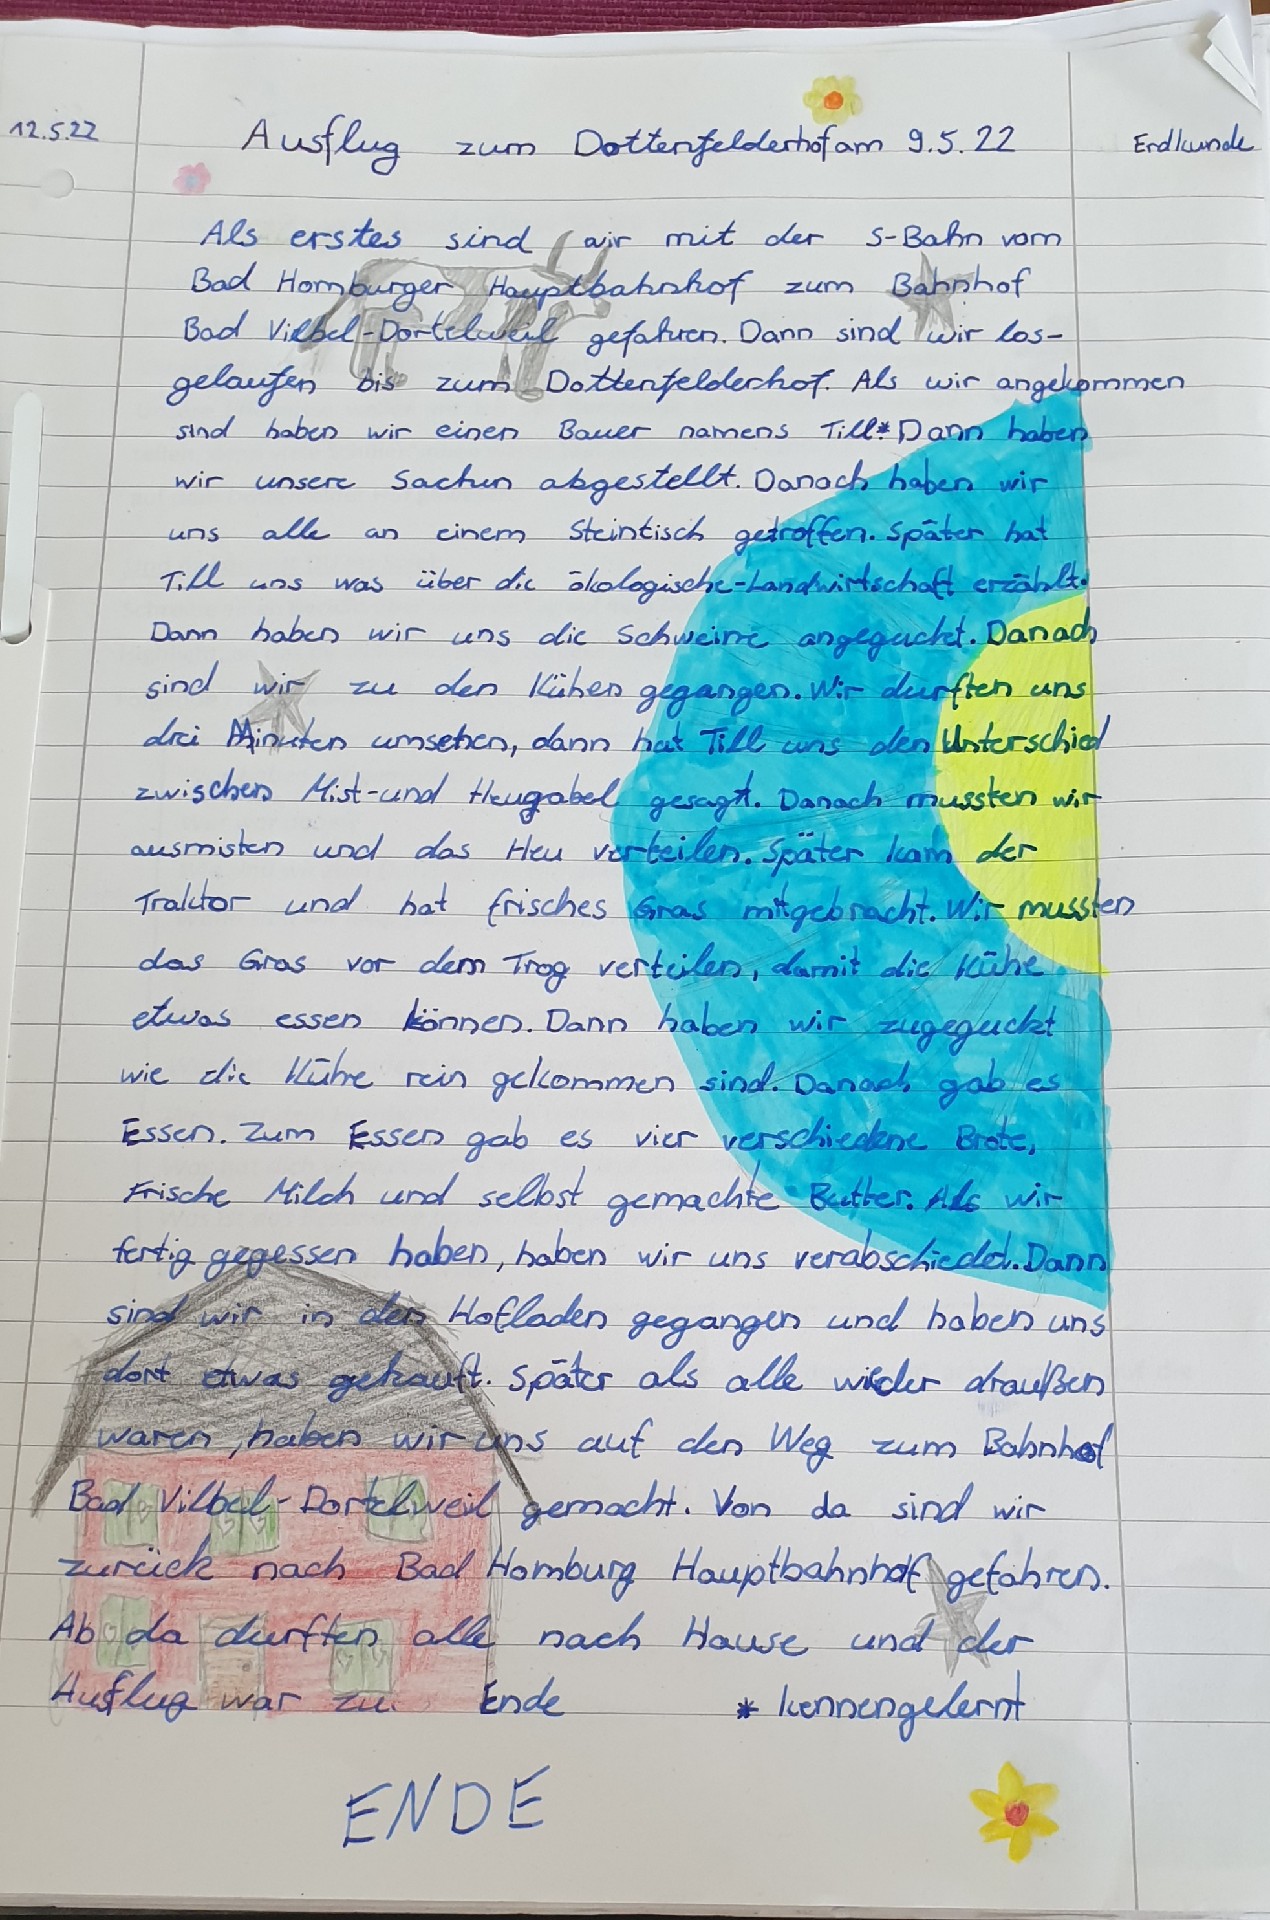 12.5.22 Ausflug zum Dottenfelderhof am 9.5.22 Erdkunde
Als erstes sind wir mit der S-Bahn vom
Bad Homburger Hauptbahnhof zum Bahnhof
Bad Vilbel-Dortelweil gefahren. Dann sind wir los-
gelaufen bis zum Dottenfelderhof. Als wir angekommen
sind haben wir einen Bauer namens Till* Dann haben
wir unsere Sachen abgestellt. Danach haben wir
uns alle an einem Steintisch getroffen. Später hat
Till uns was über die ökologische-Landwirtschaft erzählt.
Dann haben wir uns die Schweine angeguckt. Danach
sind wir zu den Kühen gegangen. Wir durften uns
drei Minuten umsehen, dann hat Till uns den Unterschied
zwischen Mist-und Heugabel gesagt. Danach mussten wir
ausmisten und das Heu verteilen. Später kam der
Traktor und hat frisches Gras mitgebracht. Wir mussten
das Gras vor dem Trog verteilen, damit die Kühe
etwas essen können. Dann haben wir zugeguckt
wie die Kühe rein gekommen sind. Danach gab es
Essen. Zum Essen gab es vier verschiedene Brote,
Frische Milch und selbst gemachte Butter. Als wir
fertig gegessen haben, haben wir uns verabschiedet. Dann
sind wir in den Hofladen gegangen und haben uns
dort etwas gekauft. Später als alle wieder draußen
waren, haben wir uns auf den Weg zum Bahnhof
Bad Vilbel-Dortelweil gemacht. Von da sind wir
zurück nach Bad Homburg Hauptbahnhof gefahren.
Ab da durften alle nach Hause und der
Ausflug war zu Ende * kennengelernt
ENDE